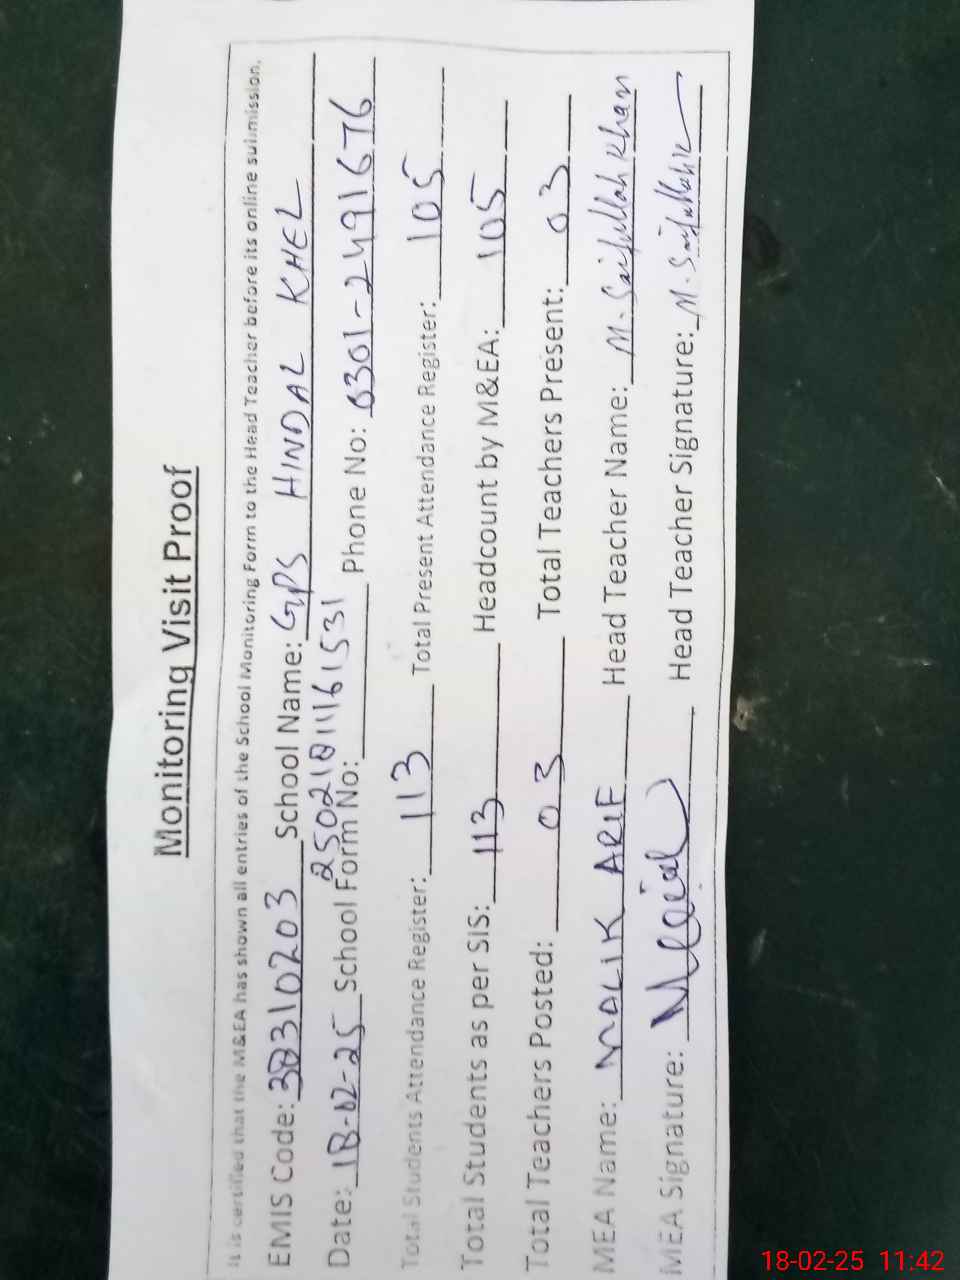 Monitoring Visit Proof
It is certified that the M&EA has shown all entries of the School Monitoring Form to the Head Teacher before its online submission.
EMIS Code: 38310203 School Name: GPS HINDAL KHEL
Date: 18-02-25 School Form No: 25021811161531 Phone No: 0301-2491676
Total Students Attendance Register: 113 Total Present Attendance Register: 105
Total Students as per SIS: 113 Headcount by M&EA: 105
Total Teachers Posted: 03 Total Teachers Present: 03
MEA Name: MALIK ARIF Head Teacher Name: M. Saifullah Khan
MEA Signature: Head Teacher Signature: M. Saifullah K
18-02-25 11:42